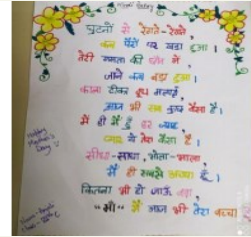 घुटनों से रेंगते-रेंगते
कब पैरों पर खड़ा हुआ ।
तेरी ममता की छाँव में
जाने कब बड़ा हुआ ।
काला टीका दूध मलाई
आज भी सब कुछ वैसा है ।
मैं ही मैं हूँ हर जगह
प्यार ये तेरा कैसा है ।
सीधा-साधा, भोला-भाला
मैं ही सबसे अच्छा हूँ ।
कितना भी हो जाऊँ बड़ा
"माँ" मैं आज भी तेरा बच्चा
Happy
Mother's
Day